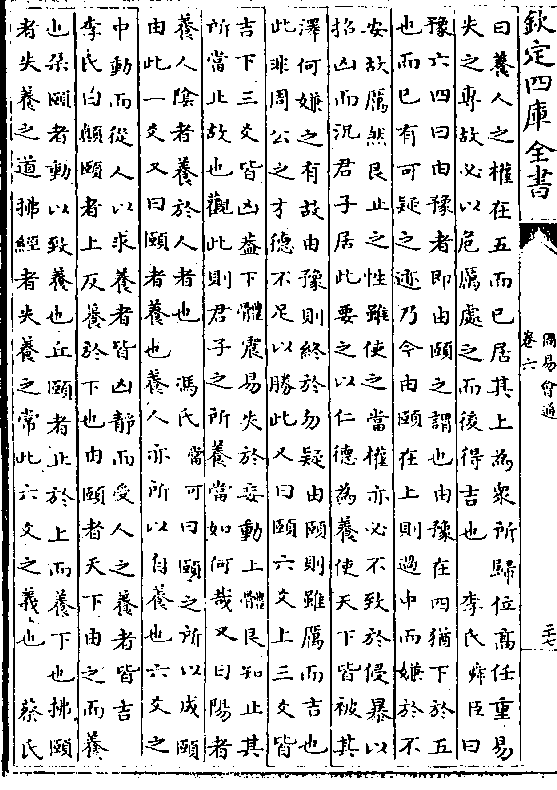 欽定四庫全書
周易會通
卷六
三七
曰養人之權在五而已居其上為衆所歸位高任重易
失之專故必以危厲處之而後得吉也　李氏舜臣曰
豫六四曰由豫者即由頤之謂也由豫在四猶下於五
也而已有可疑之迹乃今由頤在上則過中而嫌於不
安故厲然艮止之性雖使之當權亦必不致於侵暴以
招凶而況君子居此要之以仁德為養使天下皆被其
澤何嫌之有故由豫則終於勿疑由頤則雖厲而吉也
此非周公之才德不足以勝此又曰頤六爻上三爻皆
吉下三爻皆凶葢下體震易失於妄動上體艮知止其
所當止故也觀此則君子之所養當如何哉又曰陽者
養人陰者養於人者也　馮氏當可曰頤之所以成頤
由此一爻又曰頤者養也養人亦所以自養也六爻之
中動而從人以求養者皆凶靜而受人之養者皆吉
李氏曰顛頤者上反養於下也由頤者天下由之而養
也朶頤者動以致養也丘頤者止於上而養下也拂頤
者失養之道拂經者失養之常此六爻之義也　蔡氏